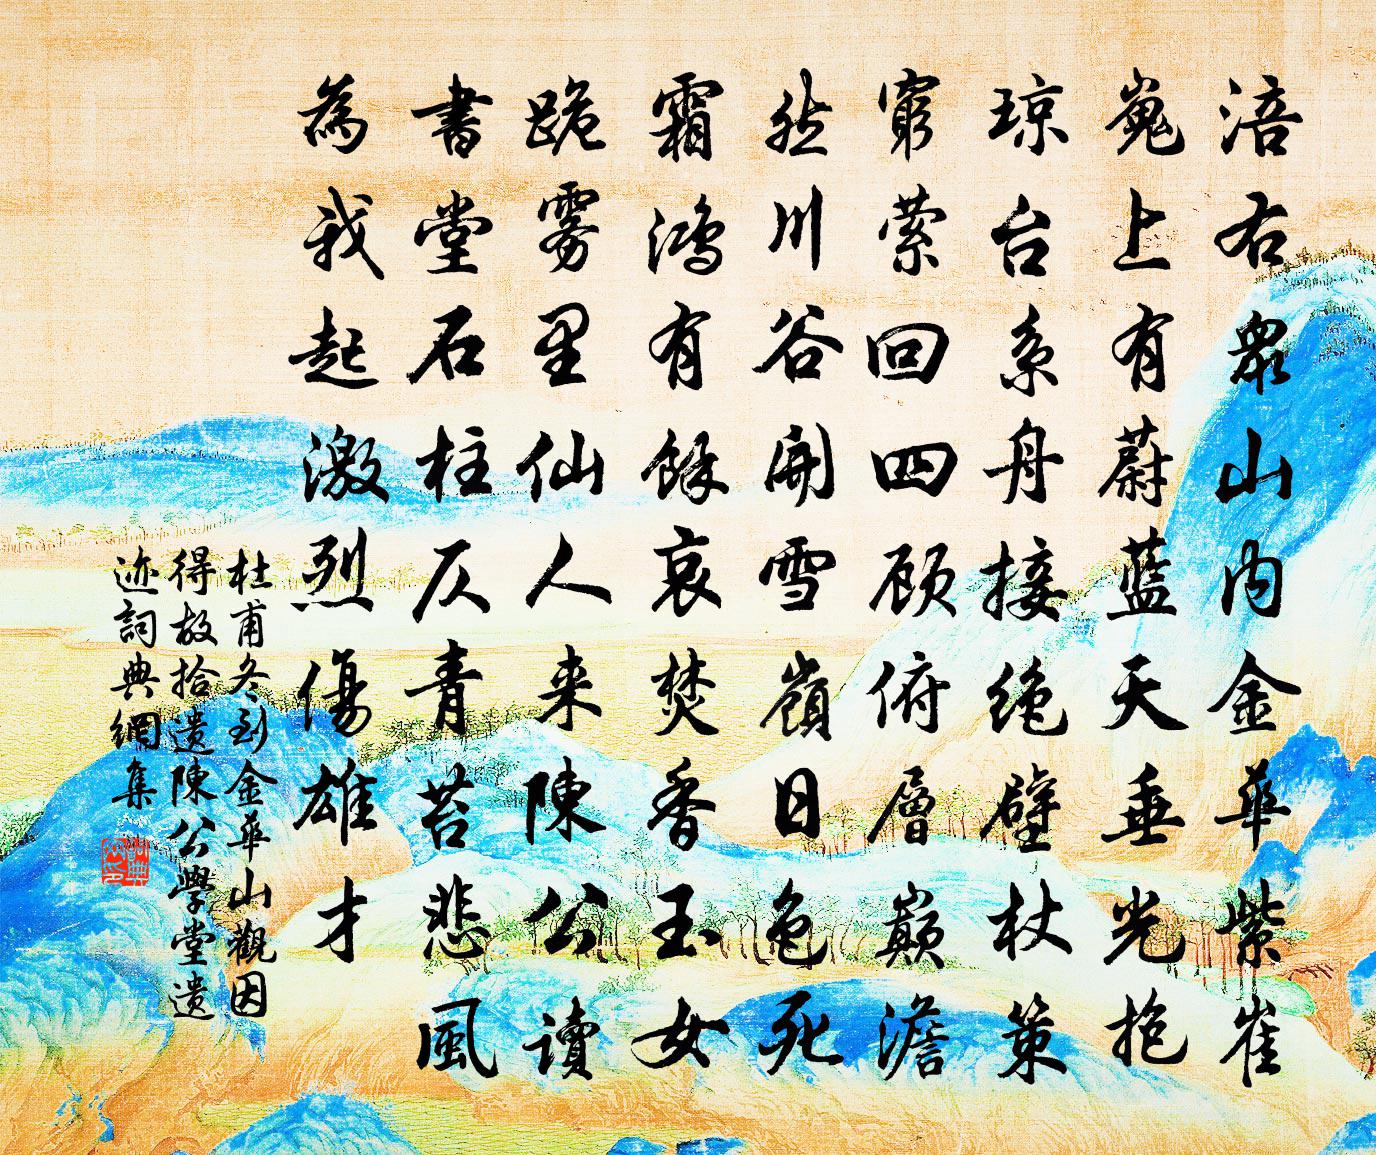 涪右衆山内金華紫崔
嵬上有蔚藍天垂光抱
琼台系舟接绝壁杖策
窮萦回四顾俯層巅澹
然川谷開雪嶺日色死
霜鸿有餘哀焚香玉女
跪雾里仙人来陳公讀
書堂石柱仄青苔悲風
為我起激烈傷雄才
杜甫冬到金華山觀因
得故拾遗陳公學堂遗
迹詞典網集